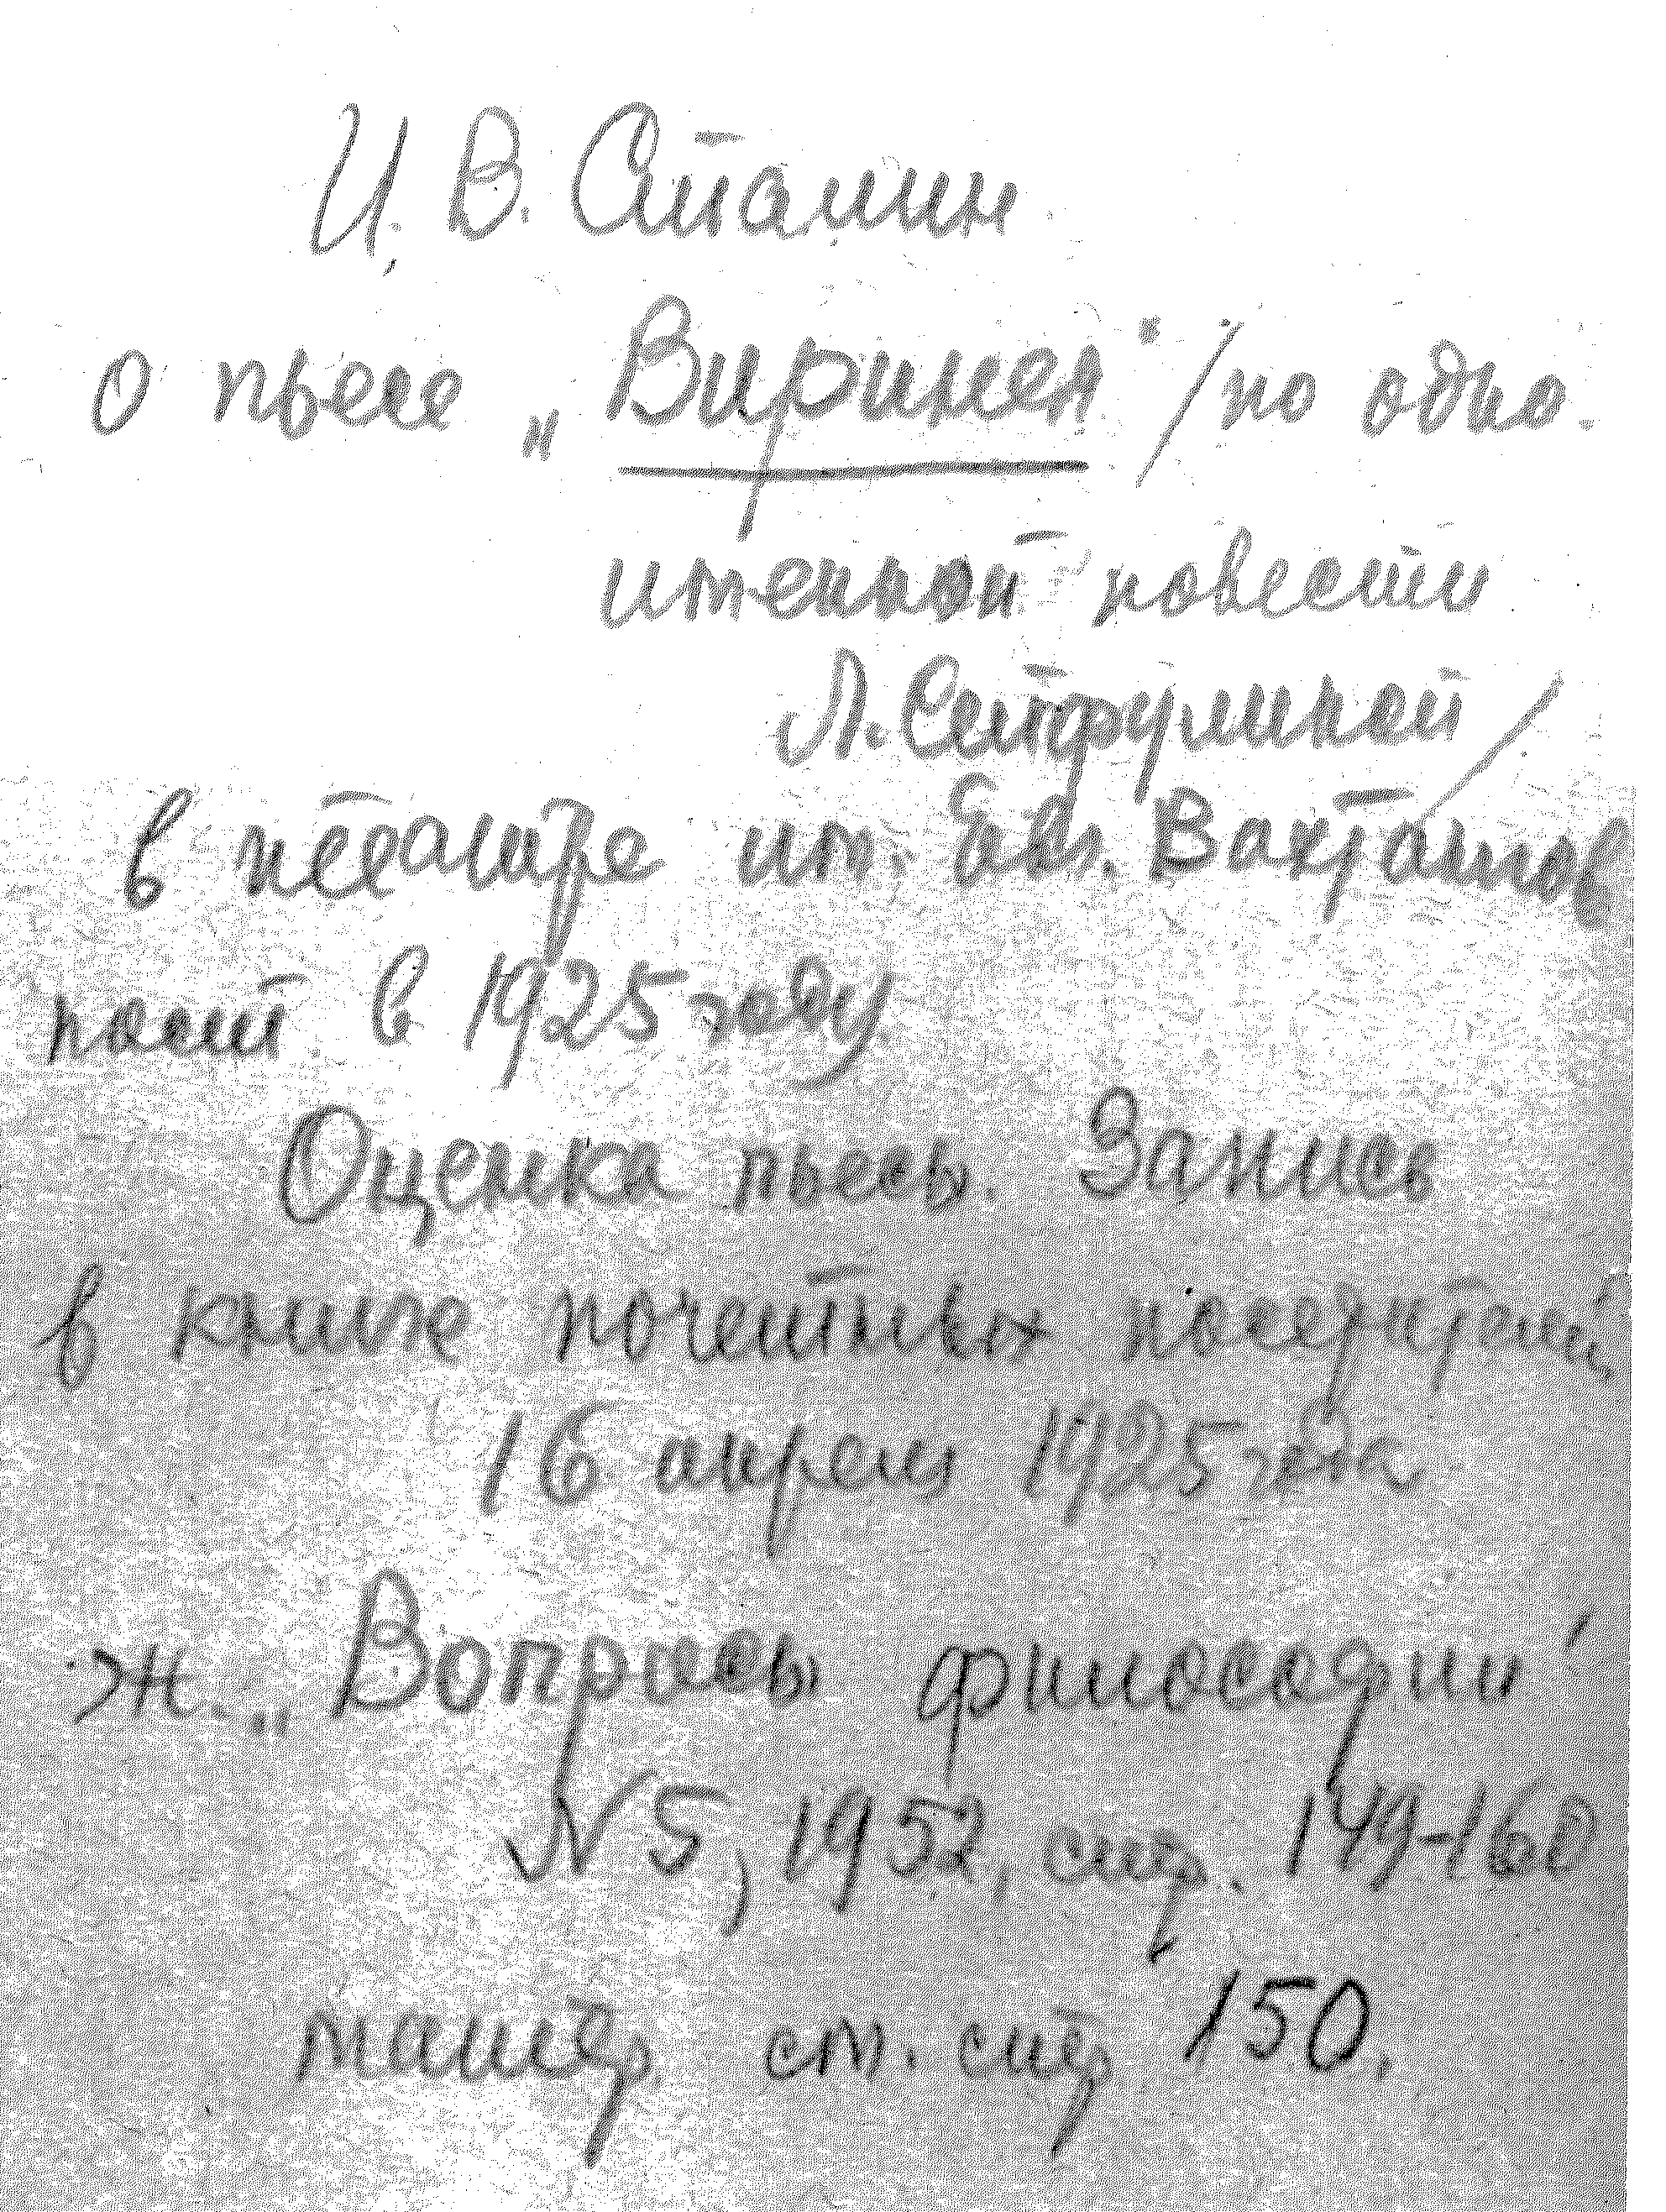 И. В. Сталин.
о пьесе „Виринея" /по одно-
именной повести
Л. Сейфулиной/
в театре им. Евг. Вахтангов
пост. в 1925 году.
Оценка пьесы. Запись
в книге почетных посетителей
16 апреля 1925 года
ж. „Вопросы философии"
N 5, 1952, стр. 149-160
матер. см. стр. 150.